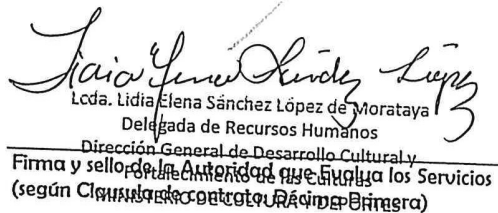 Lidia Elena Sánchez López
Lcda. Lidia Elena Sánchez López de Morataya
Delegada de Recursos Humanos
Dirección General de Desarrollo Cultural y
Fortalecimiento de las Culturas
MINISTERIO DE CULTURA Y DEPORTES
Firma y sello de la Autoridad que Evalua los Servicios
(según Clausula de contrato Décima Primera)